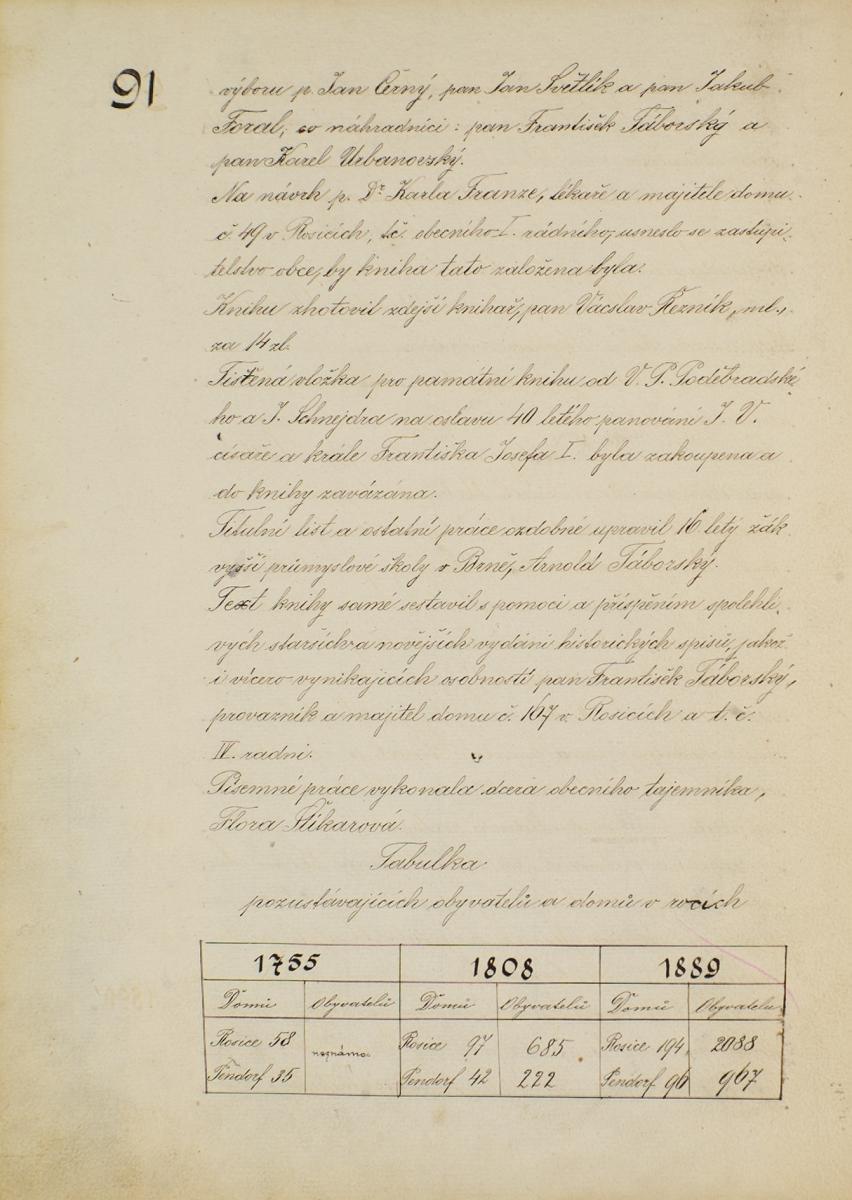 91
výboru p. Jan Černý, pan Jan Světlík a pan Jakub
Foral, co náhradníci: pan František Táborský a
pan Karel Urbanovský.
Na návrh p. Dr Karla Franze, lékaře a majitele domu
č. 49 v Rosicích, t.č. obecního I. rádního, usneslo se zastupi-
telstvo obce, by kniha tato založena byla.
Knihu zhotovil zdejší knihař, pan Vácslav Řezník, ml.,
za 14 zl.
Tištěná vložka pro památní knihu od V. P. Poděbradské
ho a J. Schnejdra na oslavu 40 letého panování J. V.
císaře a krále Františka Josefa I. byla zakoupena a
do knihy zavázána.
Titulní list a ostatní práce ozdobné upravil 16 letý žák
vyšší průmyslové školy v Brně, Arnold Táborský.
Text knihy samé sestavil s pomocí a přispěním spolehli-
vých starších a novějších vydání historických spisů, jakož
i vícero vynikajících osobností pan František Táborský,
provazník a majitel domu č. 167 v Rosicích a t. č.
IV. radní.
Písemné práce vykonala dcera obecního tajemníka,
Flora Šlikarová.
Tabulka
pozustávajících obyvatelů a domů v rocích
1755 1808 1889
Domů Obyvatelů Domů Obyvatelů Domů Obyvatelů
Rosice 58 neznámo Rosice 97 685 Rosice 194 2088
Pendorf 35 Pendorf 42 222 Pendorf 96 967